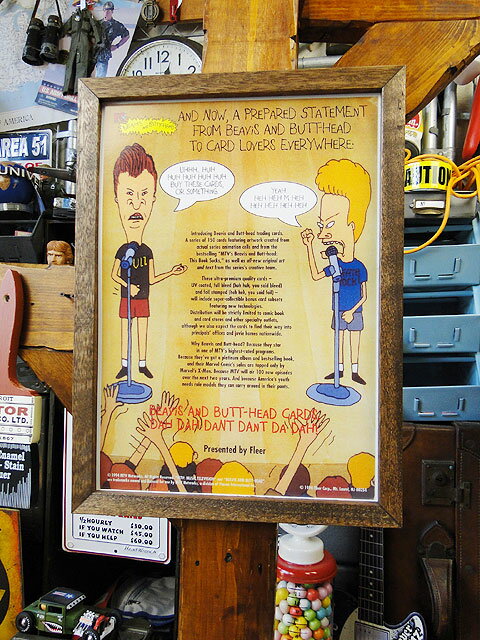 AMERICA
AREA 51
12
AND NOW, A PREPARED STATEMENT
FROM BEAVIS AND BUTT-HEAD
TO CARD LOVERS EVERYWHERE:
UHHH, HUH
HUH HUH HUH HUH
BUY THESE CARDS,
OR SOMETHING.
YEAH
HEH HEH M HEH
HEH HEH HEH HEH
Introducing Beavis and Butt-head trading cards.
A series of 150 cards featuring artwork created from
actual series animation cells and from the
bestselling "MTV's Beavis and Butt-head:
This Book Sucks," as well as all-new original art
and text from the series's creative team.
These ultra-premium quality cards –
UV coated, full bleed (huh huh, you said bleed)
and foil stamped (heh heh, you said foil) –
will include super-collectible bonus card subsets
featuring new technologies.
Distribution will be strictly limited to comic book
and card stores and other specialty outlets,
although we also expect the cards to find their way into
principals' offices and juvie homes nationwide.
Why Beavis and Butt-head? Because they star
in one of MTV's highest-rated programs.
Because they've got a platinum album and bestselling book,
and their Marvel Comic's sales are topped only by
Marvel's X-Men. Because MTV will air 100 new episodes
over the next two years. And because America's youth
needs role models they can carry around in their pants.
BEAVIS AND BUTT-HEAD CARDS.
DAH DAH DANT DANT DA DAH!
Presented by Fleer
© 1994 MTV Networks. All Rights Reserved.
© 1994 Fleer Corp., Mt. Laurel, NJ 08054
CO. LTD.
Enamel
Stain
1/2 HOURLY $30.00
IF YOU WATCH $45.00
IF YOU HELP $60.00